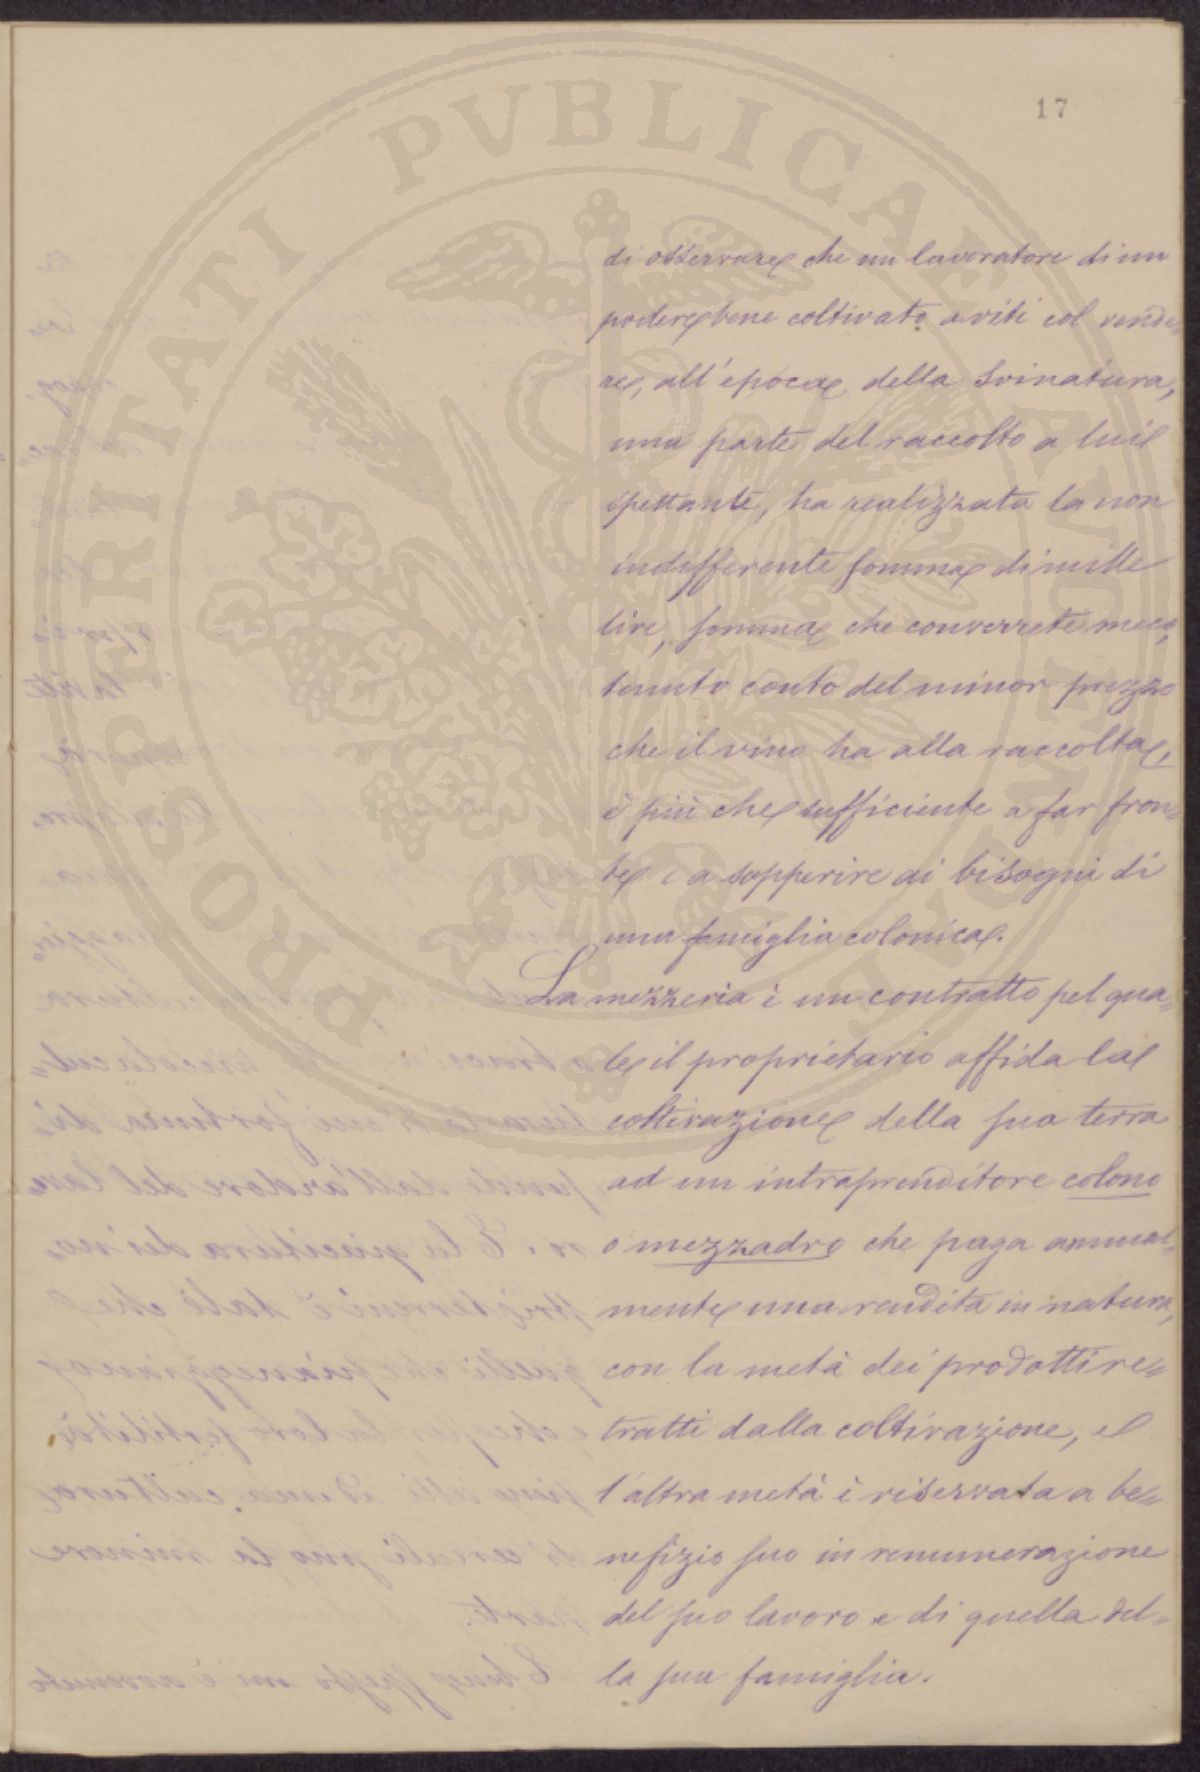 17
PROSPERITATI PVBLICAE AVGENDAE
di osservare che un lavoratore di un
podere bene coltivato a viti col vende-
re, all'epoca della svinatura,
una parte del raccolto a lui
spettante, ha realizzata la non
indifferente somma di mille
lire, somma che converrete meco,
tenuto conto del minor prezzo
che il vino ha alla raccolta,
è più che sufficiente a far fron-
te e a sopperire ai bisogni di
una famiglia colonica.
La mezzeria è un contratto pel qua-
le il proprietario affida la
coltivazione della sua terra
ad un intraprenditore colono
o mezzadro che paga annual-
mente una rendita in natura,
con la metà dei prodotti re-
tratti dalla coltivazione, e
l'altra metà è riservata a be-
nefizio suo in renumerazione
del suo lavoro e di quella del-
la sua famiglia.